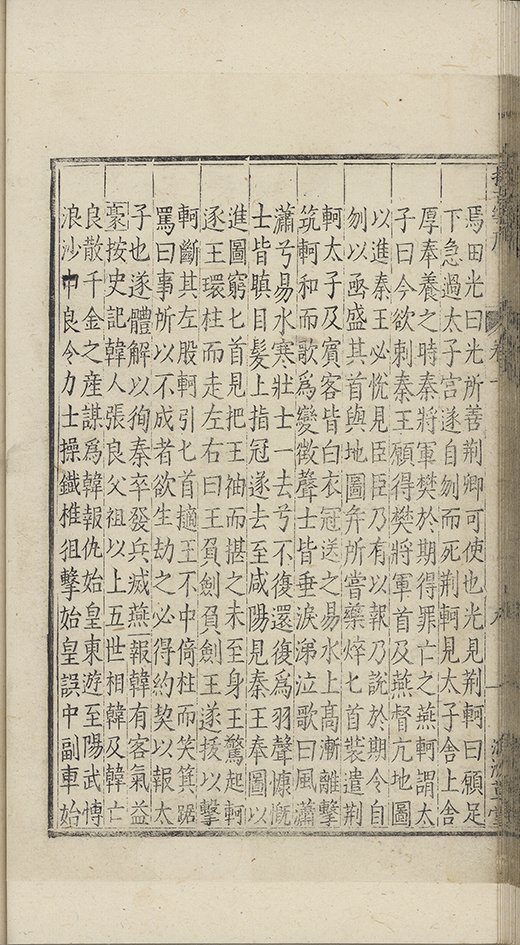 焉田光曰光所善荆卿可使也光見荆軻曰願足
下急過太子宫遂自刎而死荆軻見太子舍上舍
厚奉養之時秦將軍樊於期得罪亡之燕軻謂太
子曰今欲刺秦王願得樊將軍首及燕督亢地圖
以進秦王必悅見臣臣乃有以報乃說於期令自
刎以函盛其首與地圖并所嘗藥焠匕首裝遣荆
軻太子及賓客皆白衣冠送之易水上髙漸離擊
筑軻和而歌爲變徵聲士皆垂淚涕泣歌曰風蕭
蕭兮易水寒壯士一去兮不復還復爲羽聲慷慨
士皆瞋目髮上指冠遂去至咸陽見秦王奉圖以
進圖窮匕首見把王袖而揕之未至身王驚起軻
逐王環柱而走左右曰王負劍負劍王遂拔以擊
軻斷其左股軻引匕首擿王不中倚柱而笑箕踞
罵曰事所以不成者欲生劫之必得約契以報太
子也遂體解以徇秦卒發兵滅燕報韓有客氣益
豪按史記韓人張良父祖以上五世相韓及韓亡
良散千金之産謀爲韓報仇始皇東遊至陽武博
浪沙中良令力士操鐵椎狙擊始皇誤中副車始